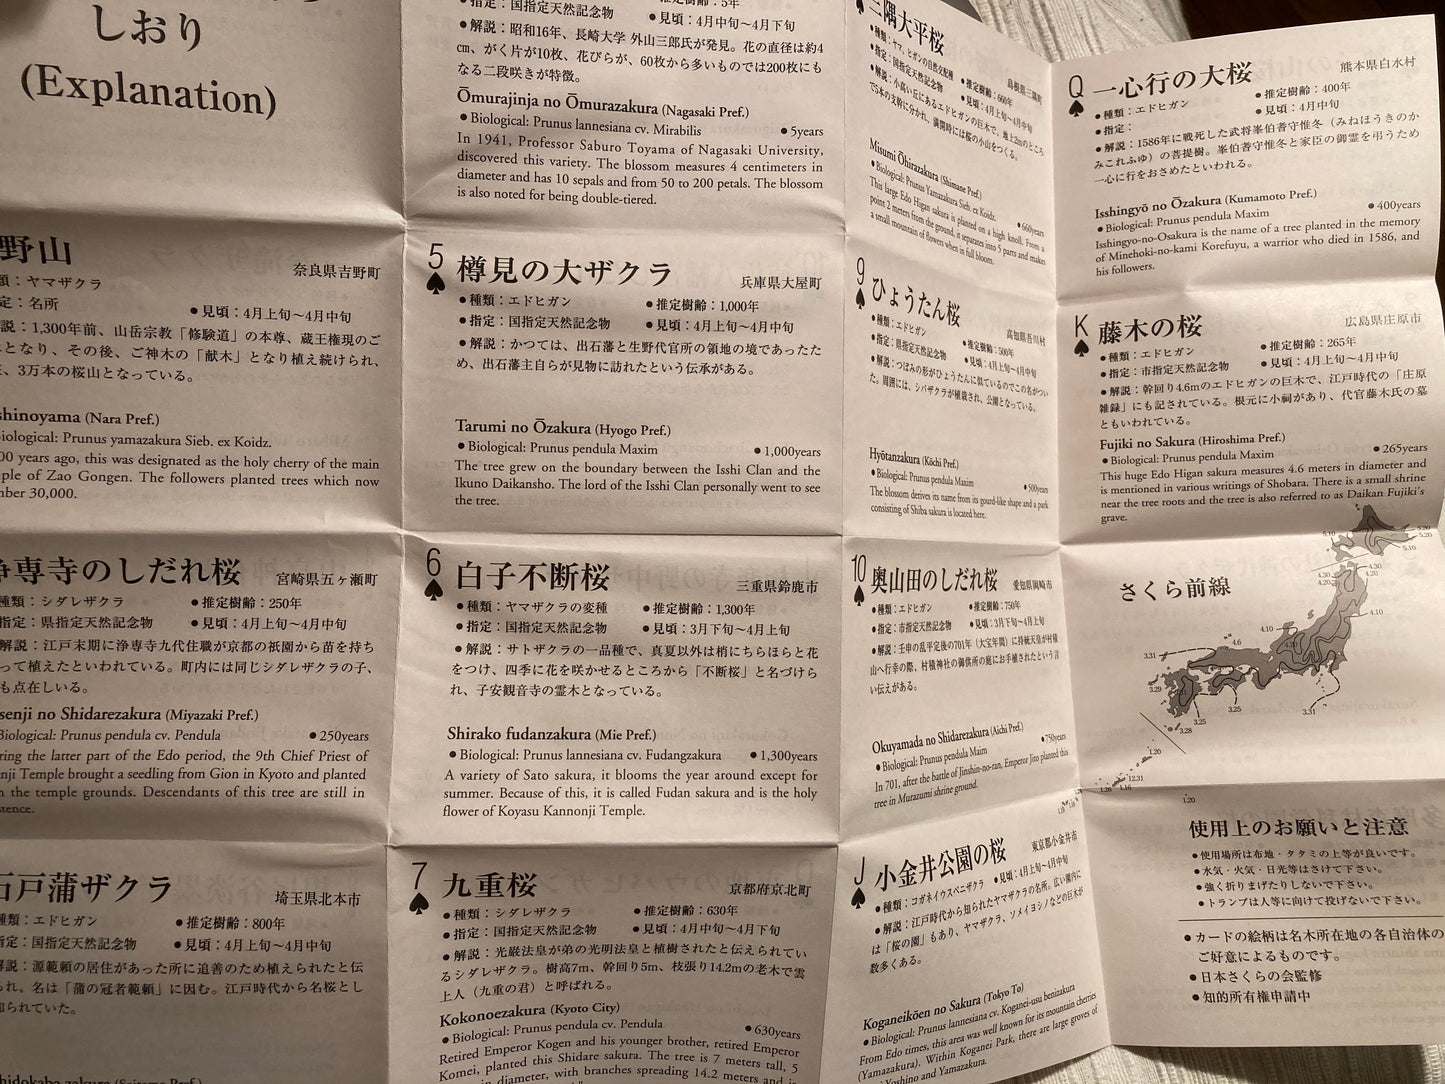 しおり
(Explanation)
野山
奈良県吉野町
類：ヤマザクラ
定：名所
●見頃：4月上旬～4月中旬
説：1,300年前、山岳宗教「修験道」の本尊、蔵王権現のご
となり、その後、ご神木の「献木」となり植え続けられ、
、3万本の桜山となっている。
shinoyama (Nara Pref.)
iological: Prunus yamazakura Sieb. ex Koidz.
00 years ago, this was designated as the holy cherry of the main
ple of Zao Gongen. The followers planted trees which now
nber 30,000.
専寺のしだれ桜
宮崎県五ヶ瀬町
種類：シダレザクラ
●推定樹齢：250年
指定：県指定天然記念物
●見頃：4月上旬～4月中旬
解説：江戸末期に浄専寺九代住職が京都の祇園から苗を持ち
って植えたといわれている。町内には同じシダレザクラの子、
も点在しいる。
senji no Shidarezakura (Miyazaki Pref.)
Biological: Prunus pendula cv. Pendula
●250years
ring the latter part of the Edo period, the 9th Chief Priest of
nji Temple brought a seedling from Gion in Kyoto and planted
n the temple grounds. Descendants of this tree are still in
stence.
石戸蒲ザクラ
埼玉県北本市
種類：エドヒガン
●推定樹齢：800年
指定：国指定天然記念物
●見頃：4月上旬～4月中旬
解説：源範頼の居住があった所に追善のため植えられたと伝
られ、名は「蒲の冠者範頼」に因む。江戸時代から名桜とし
知られていた。
●指定：国指定天然記念物
●推定樹齢：5年
●見頃：4月中旬～4月下旬
●解説：昭和16年、長崎大学 外山三郎氏が発見。花の直径は約4
㎝、がく片が10枚、花びらが、60枚から多いものでは200枚にも
なる二段咲きが特徴。
Ōmurajinja no Ōmurazakura (Nagasaki Pref.)
●Biological: Prunus lannesiana cv. Mirabilis
●5years
In 1941, Professor Saburo Toyama of Nagasaki University,
discovered this variety. The blossom measures 4 centimeters in
diameter and has 10 sepals and from 50 to 200 petals. The blossom
is also noted for being double-tiered.
5
♠
樽見の大ザクラ
兵庫県大屋町
●種類：エドヒガン
●推定樹齢：1,000年
●指定：国指定天然記念物
●見頃：4月上旬～4月中旬
●解説：かつては、出石藩と生野代官所の領地の境であったた
め、出石藩主自らが見物に訪れたという伝承がある。
Tarumi no Ōzakura (Hyogo Pref.)
●Biological: Prunus pendula Maxim
●1,000years
The tree grew on the boundary between the Isshi Clan and the
Ikuno Daikansho. The lord of the Isshi Clan personally went to see
the tree.
6
♠
白子不断桜
三重県鈴鹿市
●種類：ヤマザクラの変種
●推定樹齢：1,300年
●指定：国指定天然記念物
●見頃：3月下旬～4月上旬
●解説：サトザクラの一品種で、真夏以外は梢にちらほらと花
をつけ、四季に花を咲かせるところから「不断桜」と名づけら
れ、子安観音寺の霊木となっている。
Shirako fudanzakura (Mie Pref.)
●Biological: Prunus lannesiana cv. Fudangzakura
●1,300years
A variety of Sato sakura, it blooms the year around except for
summer. Because of this, it is called Fudan sakura and is the holy
flower of Koyasu Kannonji Temple.
7
♠
九重桜
京都府京北町
●種類：シダレザクラ
●推定樹齢：630年
●指定：国指定天然記念物
●見頃：4月中旬～4月下旬
●解説：光厳法皇が弟の光明法皇と植樹されたと伝えられてい
るシダレザクラ。樹高7m、幹回り5m、枝張り14.2mの老木で雲
上人（九重の君）と呼ばれる。
Kokonoezakura (Kyoto City)
●Biological: Prunus pendula cv. Pendula
●630years
Retired Emperor Kogen and his younger brother, retired Emperor
Komei, planted this Shidare sakura. The tree is 7 meters tall, 5
in diameter, with branches spreading 14.2 meters and is
♠
三隅大平桜
島根県三隅町
●種類：ヤマ、ヒガンの自然交配種
●推定樹齢：660年
●指定：国指定天然記念物
●見頃：4月上旬～4月中旬
●解説：小高い丘にあるエドヒガンの巨木で、地上2mのところ
で5本の支幹に分かれ、満開時には桜の小山をつくる。
Misumi Ōhirazakura (Shimane Pref.)
●Biological: Prunus Yamazakura Sieb. ex Koidz.
●660years
This large Edo Higan sakura is planted on a high knoll. From a
point 2 meters from the ground, it separates into 5 parts and makes
a small mountain of flowers when in full bloom.
9
♠
ひょうたん桜
高知県吾川村
●種類：エドヒガン
●推定樹齢：500年
●指定：県指定天然記念物
●見頃：4月上旬～4月中旬
●解説：つぼみの形がひょうたんに似ているのでこの名がつい
た。周囲には、シバザクラが植栽され、公園となっている。
Hyōtanzakura (Kōchi Pref.)
●Biological: Prunus pendula Maxim
●500years
The blossom derives its name from its gourd-like shape and a park
consisting of Shiba sakura is located here.
10
♠
奥山田のしだれ桜
愛知県岡崎市
●種類：エドヒガン
●推定樹齢：750年
●指定：市指定天然記念物
●見頃：3月下旬～4月上旬
●解説：壬申の乱平定後の701年（大宝年間）に持統天皇が村積
山へ行幸の際、村積神社の御供所の庭にお手植されたという言
い伝えがある。
Okuyamada no Shidarezakura (Aichi Pref.)
●Biological: Prunus pendula Maim
●750years
In 701, after the battle of Jinshin-no-ran, Emperor Jito planted this
tree in Murazumi shrine ground.
J
♠
小金井公園の桜
東京都小金井市
●種類：コガネイウスベニザクラ
●見頃：4月上旬～4月中旬
●解説：江戸時代から知られたヤマザクラの名所。広い園内に
は「桜の園」もあり、ヤマザクラ、ソメイヨシノなどの巨木が
数多くある。
Koganeikōen no Sakura (Tokyo To)
●Biological: Prunus lannesiana cv. Koganei-usu benizakura
From Edo times, this area was well known for its mountain cherries
(Yamazakura). Within Koganei Park, there are large groves of
Yoshino and Yamazakura.
Q
♠
一心行の大桜
熊本県白水村
●種類：エドヒガン
●推定樹齢：400年
●指定：
●見頃：4月中旬
●解説：1586年に戦死した武将峯伯耆守惟冬（みねほうきのか
みこれふゆ）の菩提樹。峯伯耆守惟冬と家臣の御霊を弔うため
一心に行をおさめたといわれる。
Isshingyō no Ōzakura (Kumamoto Pref.)
●Biological: Prunus pendula Maxim
●400years
Isshingyo-no-Osakura is the name of a tree planted in the memory
of Minehoki-no-kami Korefuyu, a warrior who died in 1586, and
his followers.
K
♠
藤木の桜
広島県庄原市
●種類：エドヒガン
●推定樹齢：265年
●指定：市指定天然記念物
●見頃：4月上旬～4月中旬
●解説：幹回り4.6mのエドヒガンの巨木で、江戸時代の「庄原
雑録」にも記されている。根元に小祠があり、代官藤木氏の墓
ともいわれる。
Fujiki no Sakura (Hiroshima Pref.)
●Biological: Prunus pendula Maxim
●265years
This huge Edo Higan sakura measures 4.6 meters in diameter and
is mentioned in various writings of Shobara. There is a small shrine
near the tree roots and the tree is also referred to as Daikan Fujiki's
grave.
さくら前線
5.10
5.20
5.20
5.10
4.30
4.20
4.30
4.20
4.10
4.10
4.6
3.31
3.29
3.25
3.28
3.25
3.31
1.20
12.31
1.16
1.20
使用上のお願いと注意
●使用場所は布地・タタミの上等が良いです。
●水気・火気・日光等はさけて下さい。
●強く折りまげたりしないで下さい。
●トランプは人等に向けて投げないで下さい。
●カードの絵柄は名木所在地の各自治体の
ご好意によるものです。
●日本さくらの会監修
●知的所有権申請中